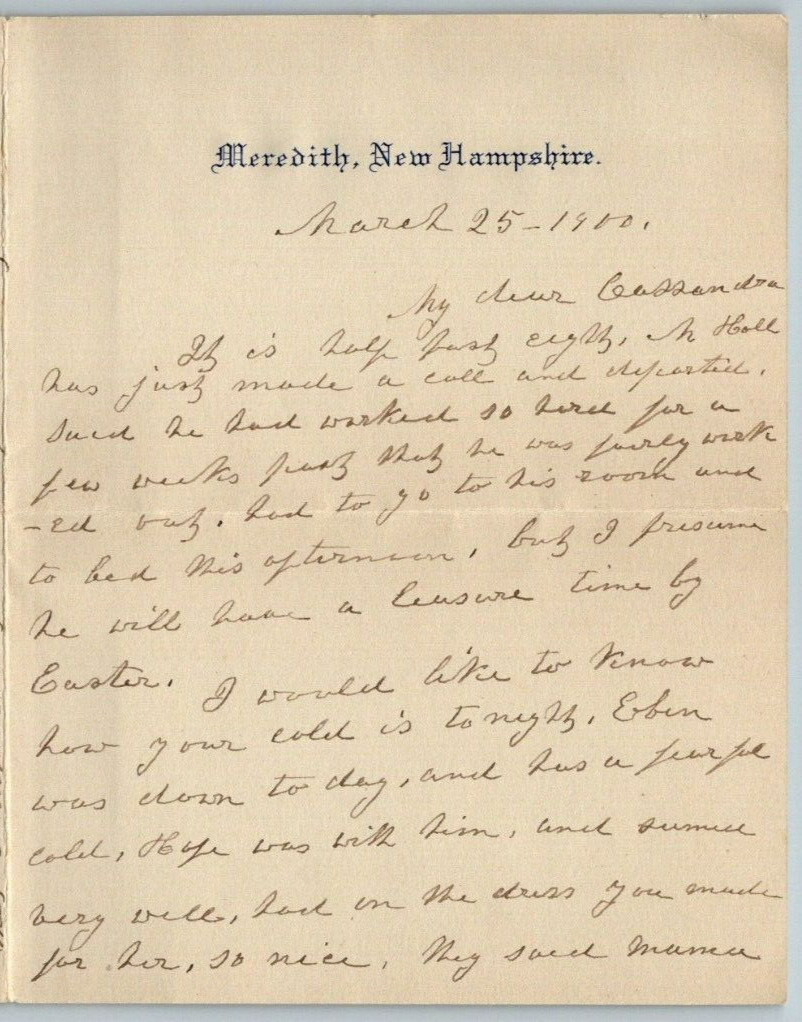 Meredith, New Hampshire.
March 25 - 1900.
My dear Cassandra
It is half past eight, Mr Holl
has just made a call and departed.
Said he had worked so hard for a
few weeks past that he was fairly work
-ed out, had to go to his room and
to bed this afternoon, but I presume
he will have a leasure time by
Easter. I would like to know
how your cold is tonight, Eben
was down to day, and has a fearful
cold, Hope was with him, and seemed
very well, had on the dress you made
for her, so nice, they said Mama